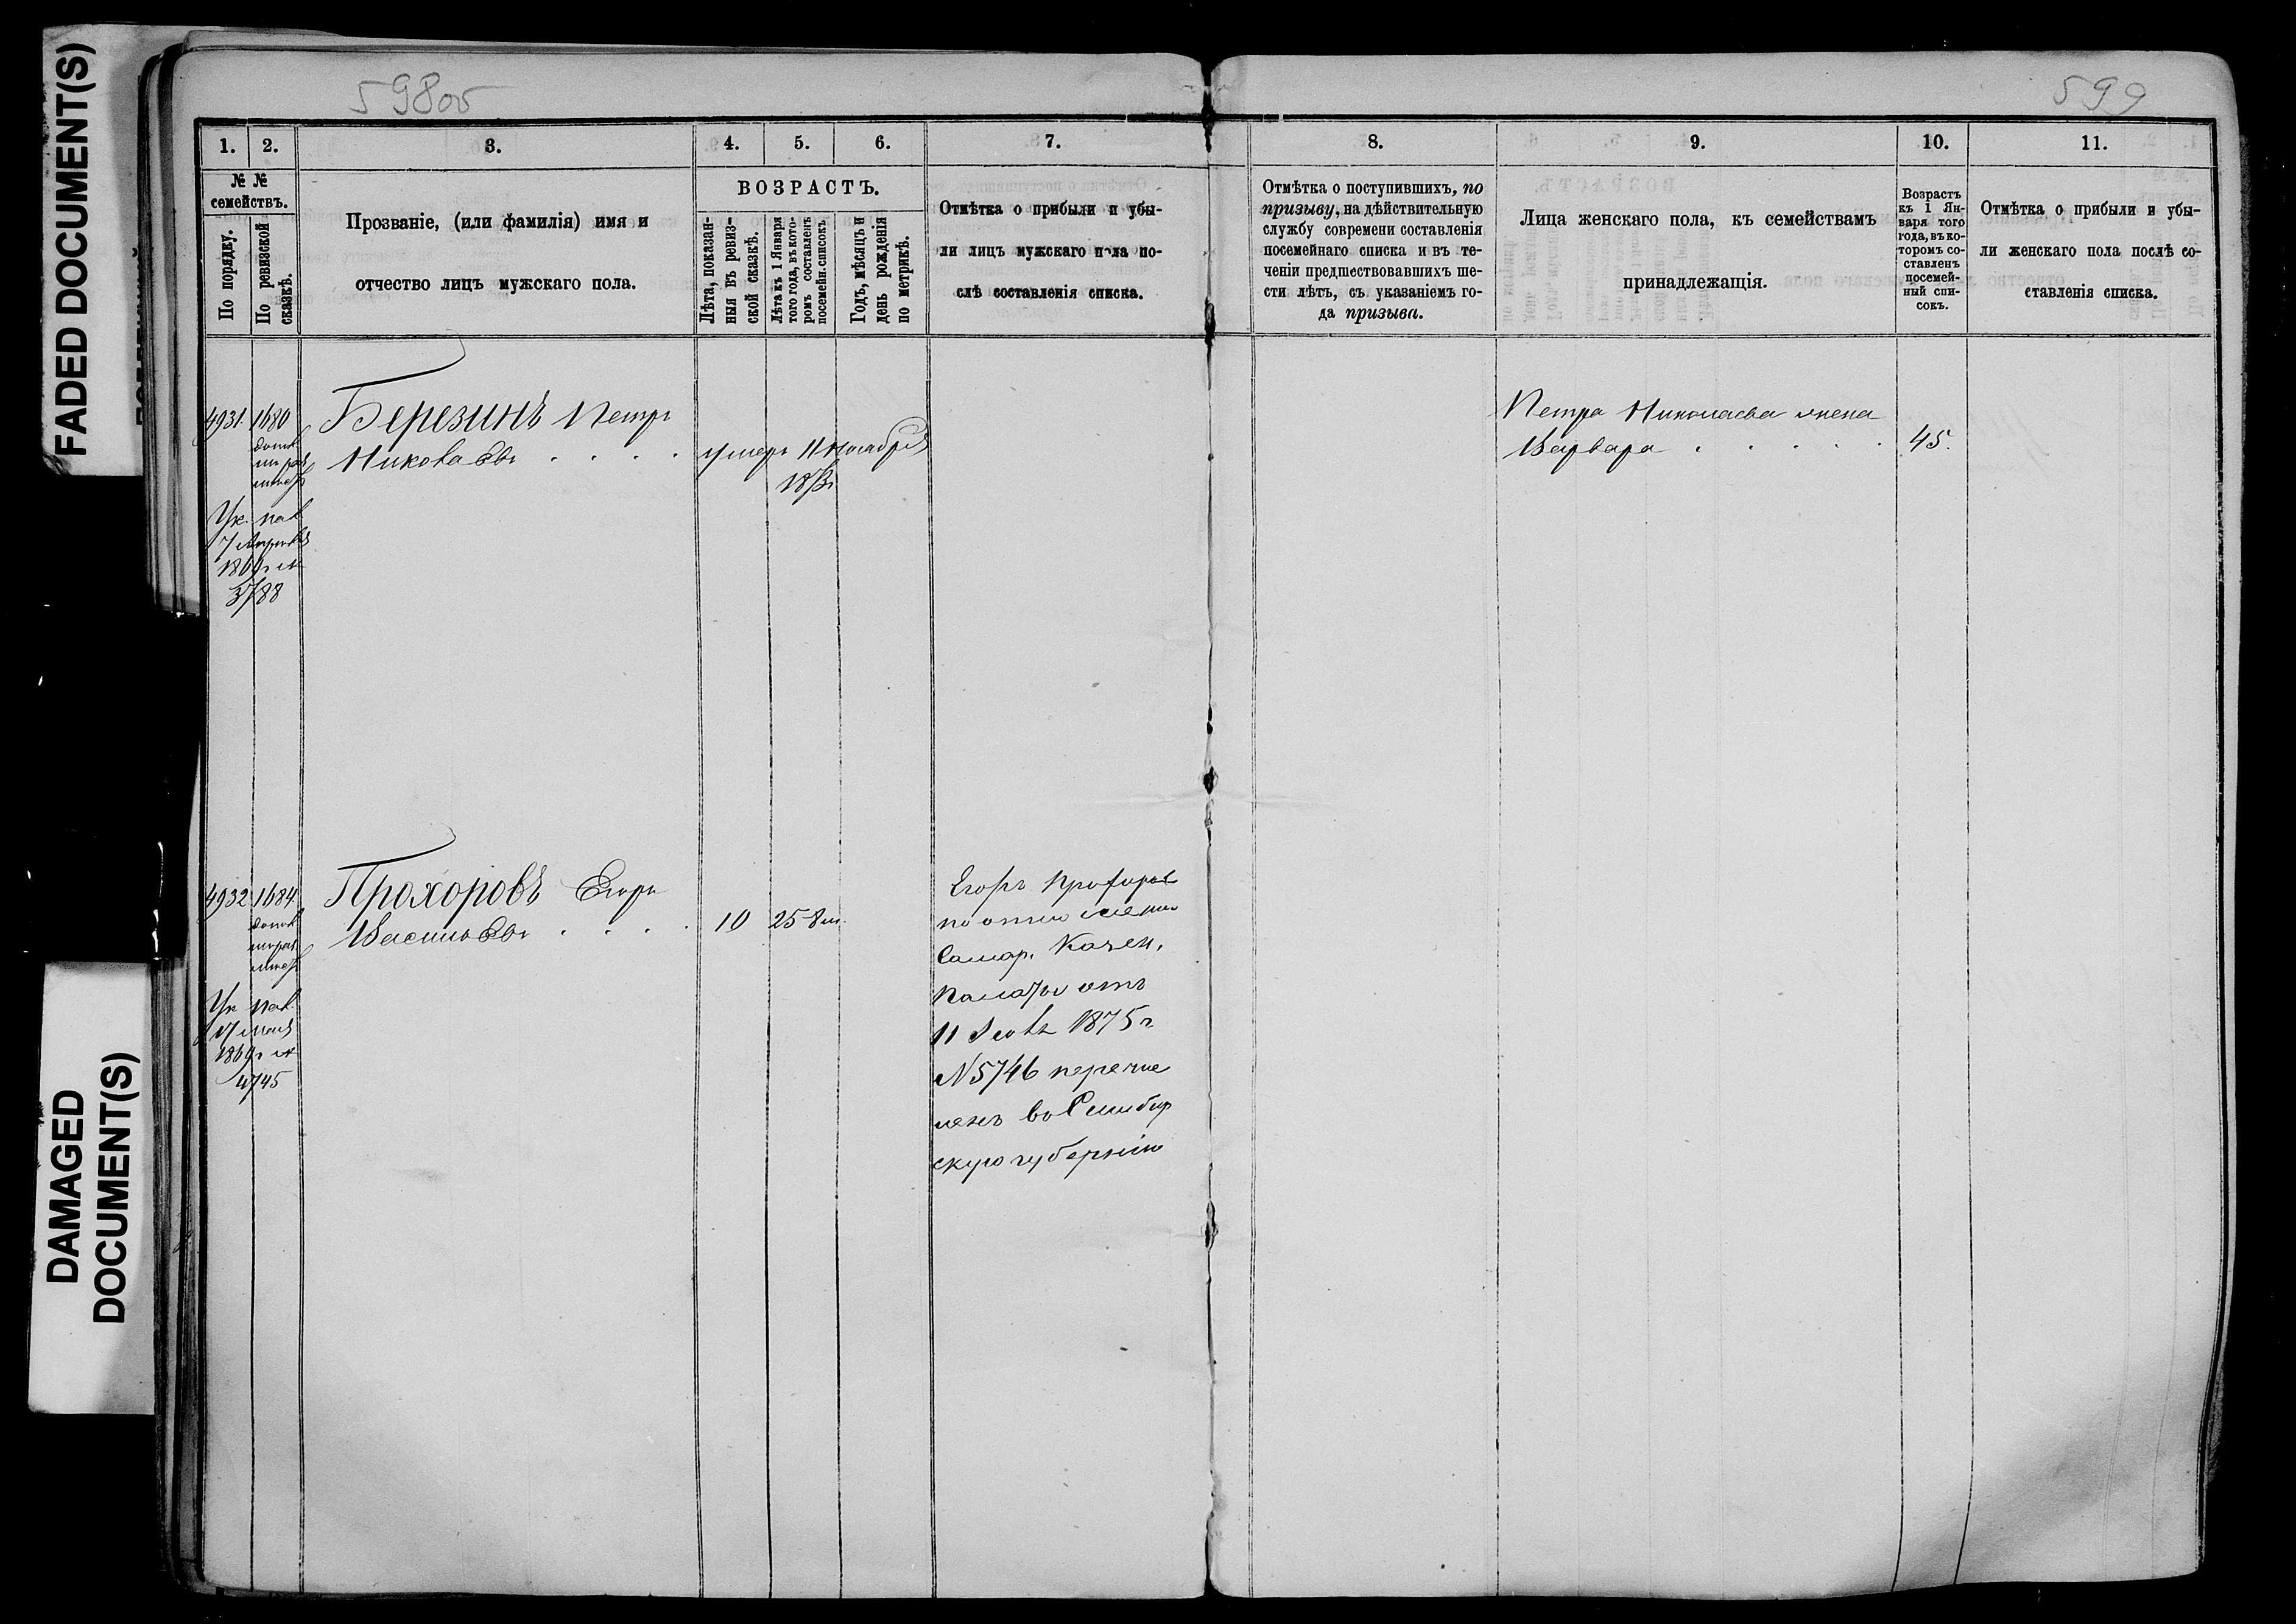 FADED DOCUMENT(S)
DAMAGED
DOCUMENT(S)
598об
599
1. 2. 3. 4. 5. 6. 7. 8. 9. 10. 11.
№ №
семействъ.
По порядку.
По ревизской
сказкѣ.
Прозваніе, (или фамилія) имя и
отчество лицъ мужскаго пола.
ВОЗРАСТЪ.
Лѣта, показан-
ныя въ ревиз-
ской сказкѣ.
Лѣта къ 1 Января
того года, въ кото-
ромъ составленъ
посемейн. списокъ
Годъ, мѣсяцъ и
день рожденія
по метрикѣ.
Отмѣтка о прибыли и убы-
ли лицъ мужскаго пола по-
слѣ составленія списка.
Отмѣтка о поступившихъ, по
призыву, на дѣйствительную
службу современи составленія
посемейнаго списка и въ те-
ченіи предшествовавшихъ ше-
сти лѣтъ, съ указаніемъ го-
да призыва.
Лица женскаго пола, къ семействамъ
принадлежащія.
Возрастъ
къ 1 Ян-
варя того
года, въ ко-
торомъ со-
ставленъ
посемей-
ный спи-
сокъ.
Отмѣтка о прибыли и убы-
ли женскаго пола послѣ со-
ставленія списка.
4931. 1680
Березинъ Петръ
Николаевъ . . . .
умеръ 11 Ноября
Петра Николаева жена
Варвара . . . . . 45.
Ук. пал.
3788
4932 1684
Прохоровъ Егоръ
Васильевъ . . . . 10 25
Ук. пал.
17 Мая
4745
Егоръ Прохоровъ
по
Самар. Казен.
Палаты отъ
11 1875 г
№ 5746 перечис
ленъ въ Симбир
скую губернію